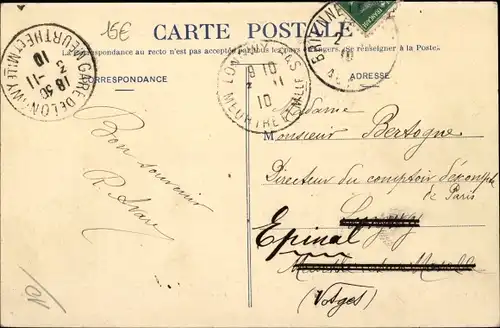 15€
CARTE POSTALE
La correspondance au recto n'est pas acceptée par tous les pays étrangers. (Se renseigner à la Poste.)
CORRESPONDANCE
ADRESSE
GARE DE LONGWY
MEURTHE ET M.LLE
18 30
3 - 11
10
LONGWY-BAS
MEURTHE ET M.LLE
10
11
10
Madame
Monsieur Bertogne
Directeur du comptoir d'éscompte
de Paris
Longwy
Epinal
Meurthe et Moselle
(Vosges)
Bon souvenir
10